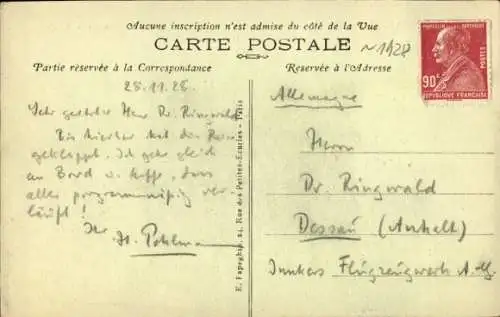 Aucune inscription n'est admise du côté de la Vue
CARTE POSTALE
~1928
Partie réservée à la Correspondance
Réservée à l'Adresse
90c
POSTES
REPUBLIQUE FRANÇAISE
25.11.28
Sehr geehrter Herr Dr. Ringwald
Bis hierher hat die Reise
geklappt. Ich gehe gleich
an Bord u. hoffe, dass
alles programmäßig ver-
läuft!
Ihr
H. Pohlmann
E. Papeghin, 24, Rue des Petites-Ecuries - Paris
Allemagne
Herrn
Dr. Ringwald
Dessau (Anhalt)
Junkers Flugzeugwerk A.-G.